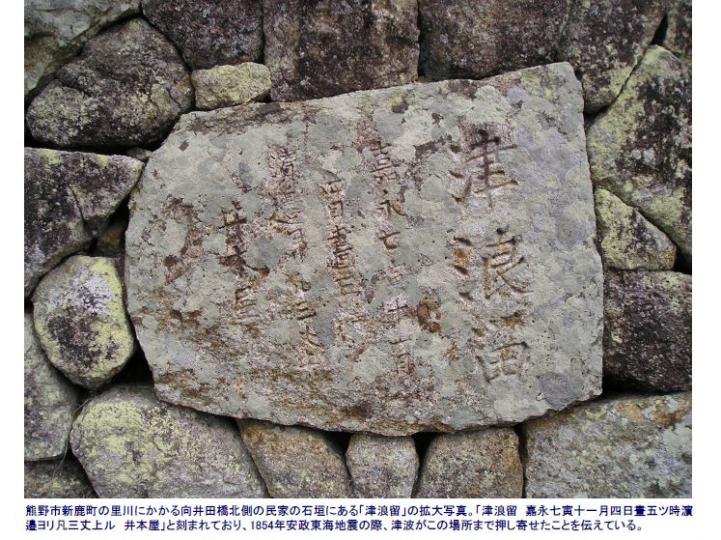 津浪留
嘉永七寅十一月
四日晝五ツ時
濵邉ヨリ凡三丈上ル
井本屋
熊野市新鹿町の里川にかかる向井田橋北側の民家の石垣にある「津浪留」の拡大写真。「津浪留　嘉永七寅十一月四日晝五ツ時濵
邉ヨリ凡三丈上ル　井本屋」と刻まれており、1854年安政東海地震の際、津波がこの場所まで押し寄せたことを伝えている。